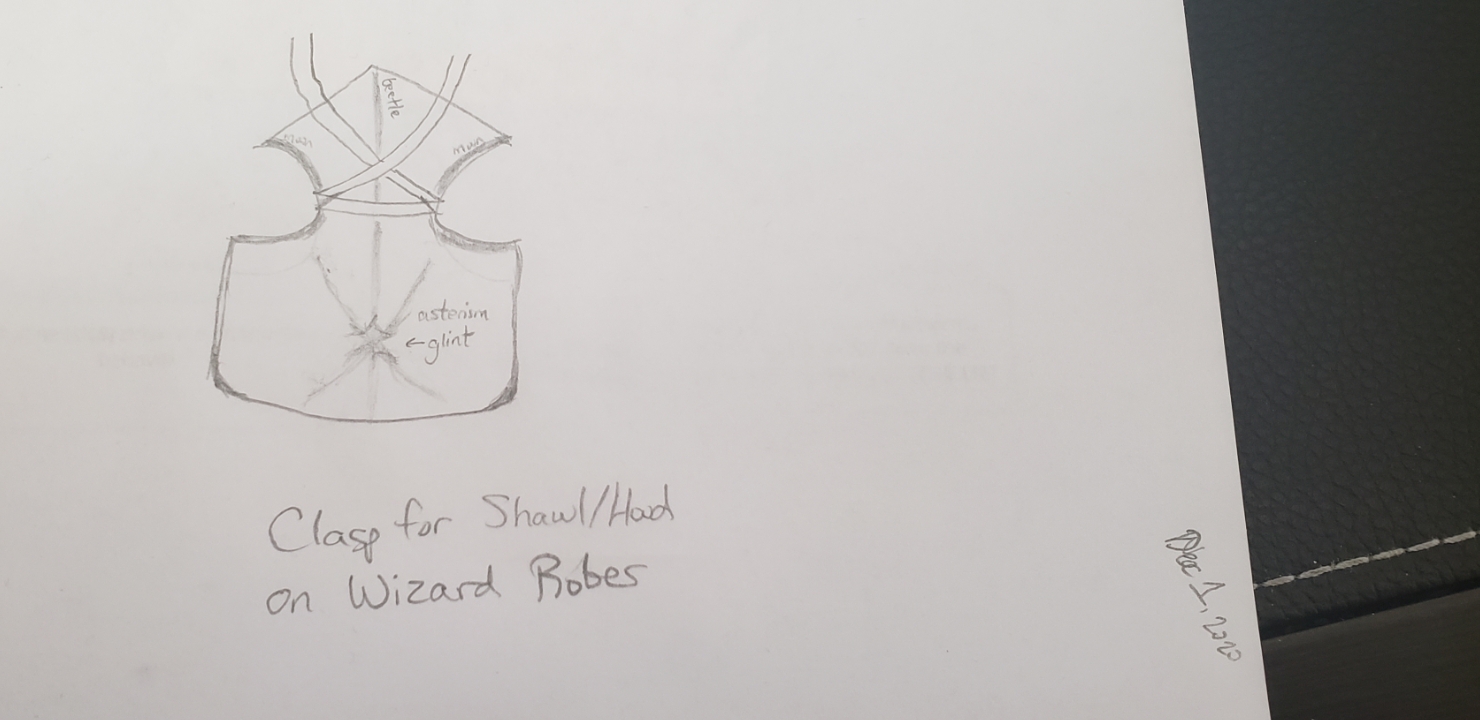 beetle
moon
moon
asterism
←glint
Clasp for Shawl/Hood
on Wizard Robes
Dec 1, 2020